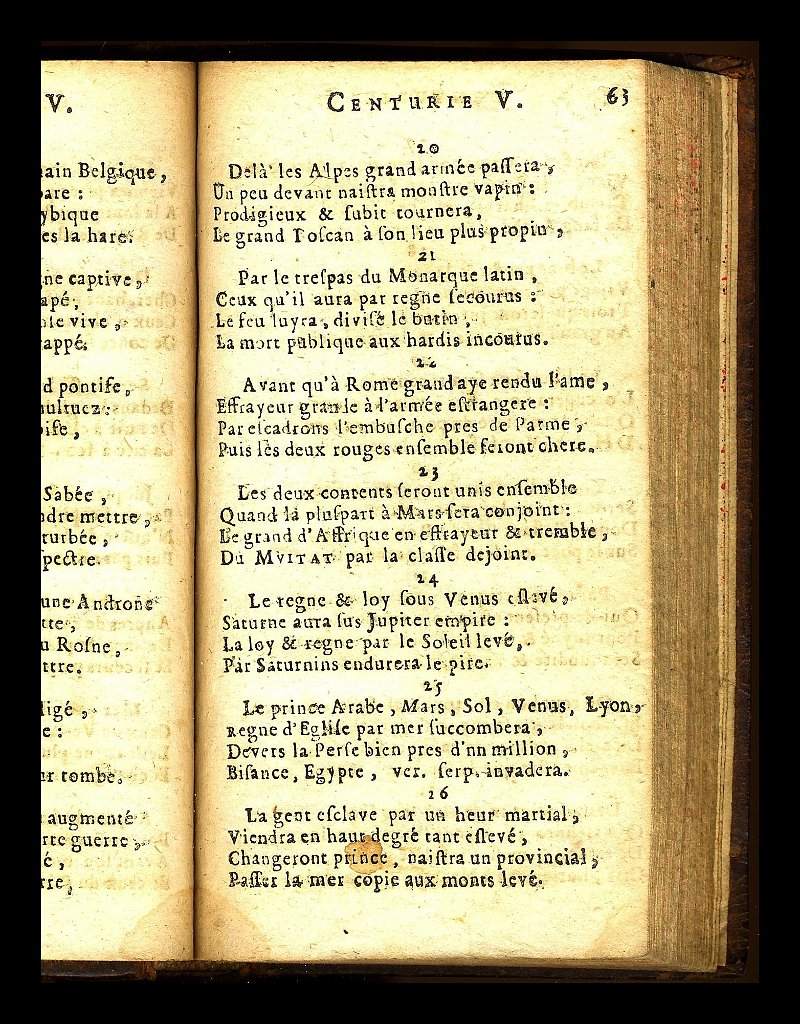 V.
ain Belgique,
are :
ybique
es la hare.
ne captive,
apé,
ble vive,
appé.
d pontife,
multuez :
oife,
Sabée,
ndre mettre,
turbée,
ſpectre.
une Androne
tte,
u Roſne,
ttre.
ligé,
e :
ur tombe.
augmenté
rte guerre,
é,
rre,
CENTURIE V. 63
20
Delà les Alpes grand armée paſſera,
Un peu devant naiſtra monſtre vapin :
Prodigieux & ſubit tournera,
Le grand Toſcan à ſon lieu plus propin,
21
Par le treſpas du Monarque latin,
Ceux qu'il aura par regne ſecourus :
Le feu luyra, diviſé le butin,
La mort publique aux hardis incourus.
22
Avant qu'à Rome grand aye rendu l'ame,
Effrayeur grande à l'armée eſtrangere :
Par eſcadrons l'embuſche pres de Parme,
Puis les deux rouges enſemble feront chere.
23
Les deux contents ſeront unis enſemble
Quand la pluſpart à Mars ſera conjoint :
Le grand d'Affrique en effrayeur & tremble,
Du MVITAT par la claſſe dejoint.
24
Le regne & loy ſous Venus eſlevé,
Saturne aura ſus Jupiter empire :
La loy & regne par le Soleil levé,
Par Saturnins endurera le pire.
25
Le prince Arabe, Mars, Sol, Venus, Lyon,
Regne d'Egliſe par mer ſuccombera,
Devers la Perſe bien pres d'nn million,
Biſance, Egypte, ver. ſerp. invadera.
26
La gent eſclave par un heur martial,
Viendra en haut degré tant eſlevé,
Changeront prince, naiſtra un provincial,
Paſſer la mer copie aux monts levé.